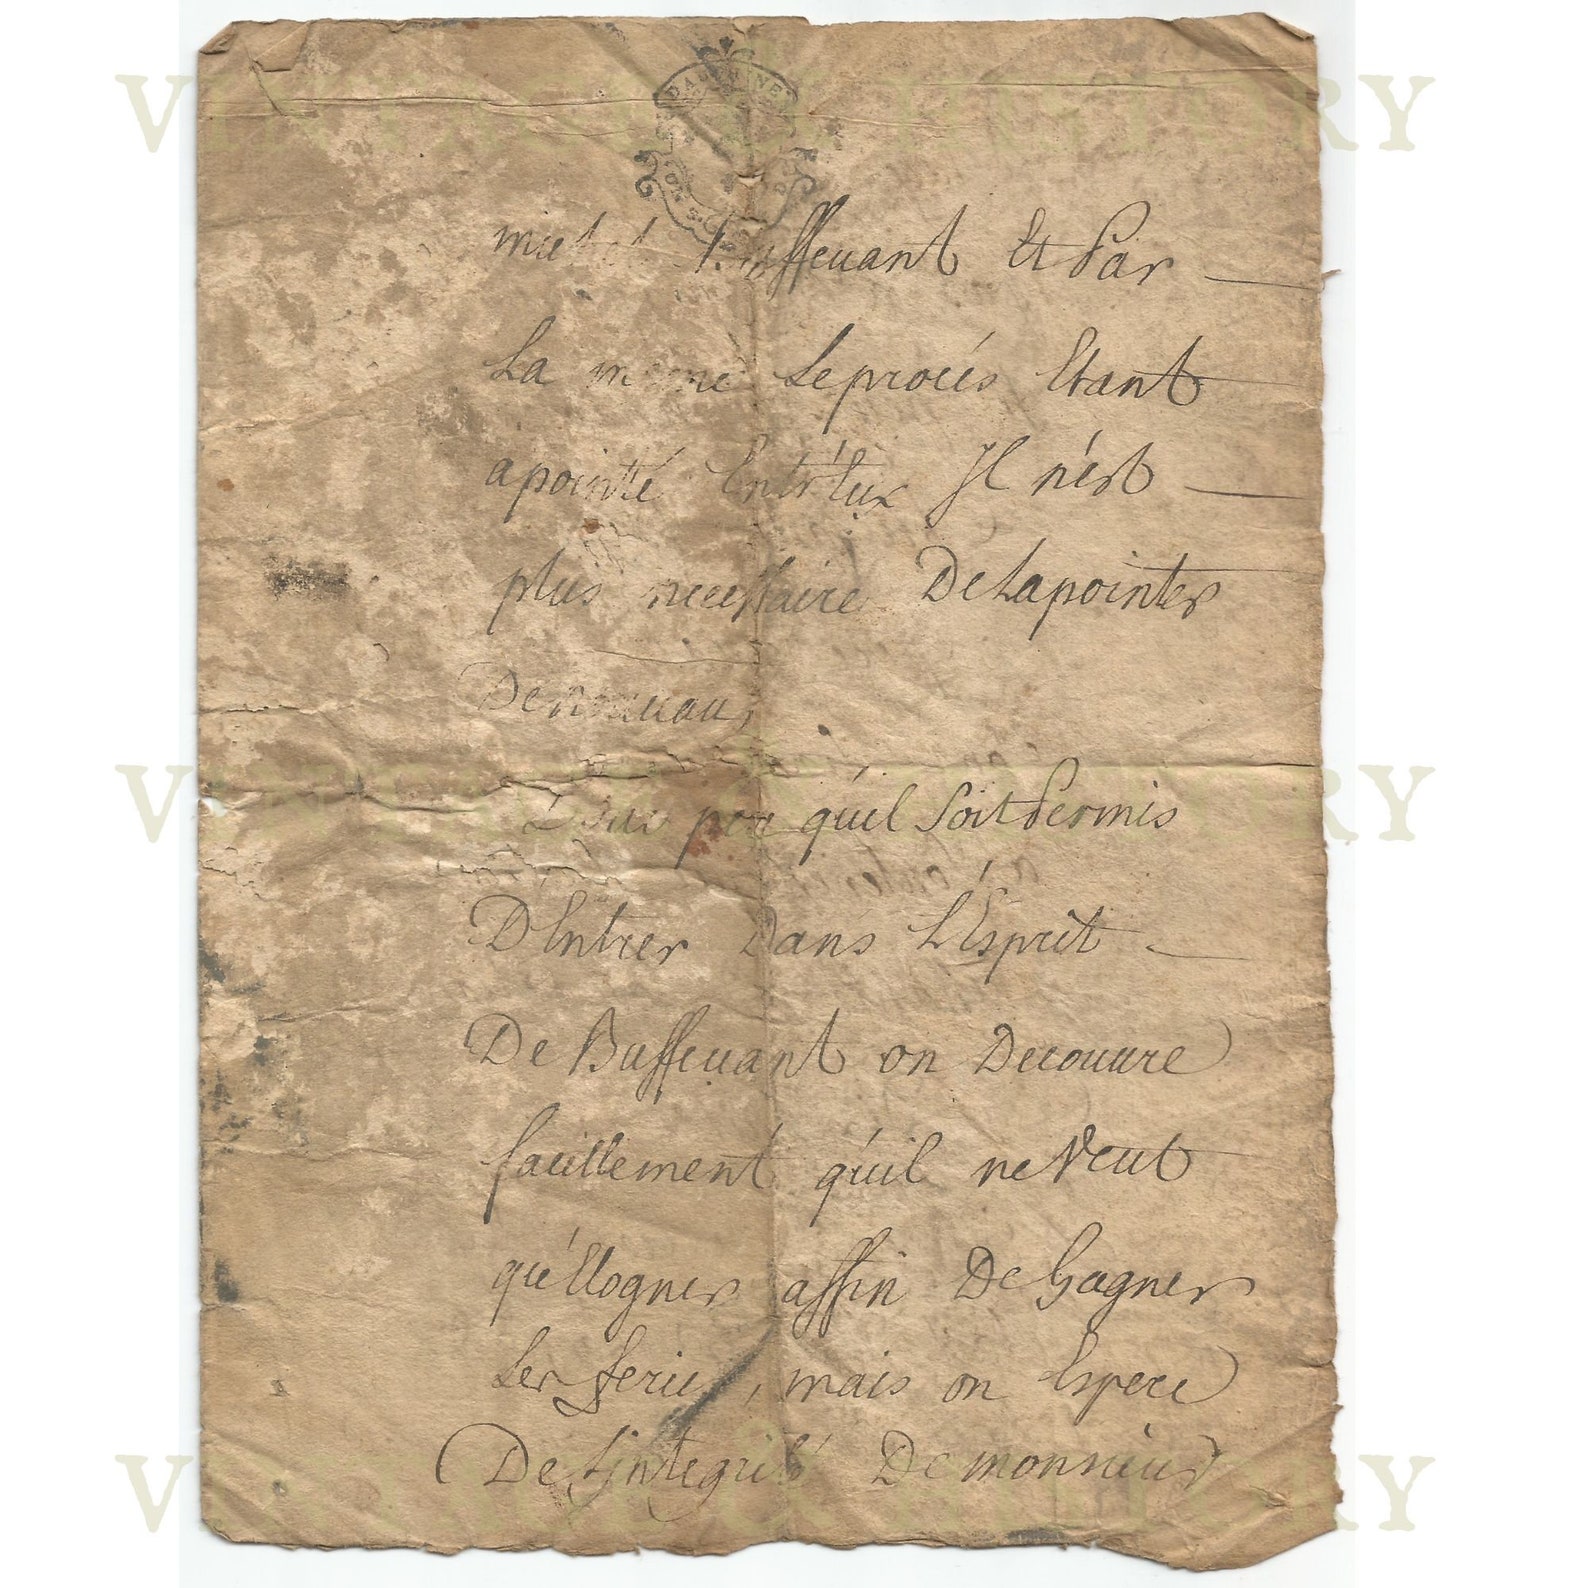 DAUPHINE
michel Buffeuant Et Par
La meme Le procés Etant
apointté Entr'eux Jl n'est
plus necessaire De Lapointer
De nouueau,
que pour qu'il Soit Permis
D'Entrer Dans L'Esprit
De Buffeuant on Decouure
facillement qu'il ne Veut
qu'Elogner affin De Gagner
Les ferie, mais on Espere
De L'integrité De monsieur
VINTAGE & HISTORY
VINTAGE & HISTORY
VINTAGE & HISTORY